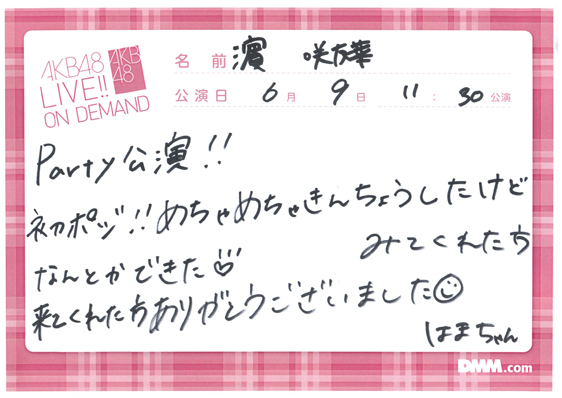 AKB48
LIVE!!
ON DEMAND
AKB
48
名前 濵 咲友菜
公演日 6月 9日 11:30公演
Party公演!!
初ポジ!!めちゃめちゃきんちょうしたけど
なんとかできた♡ みてくれた方
来てくれた方ありがとうございました☺
はまちゃん
DMM.com